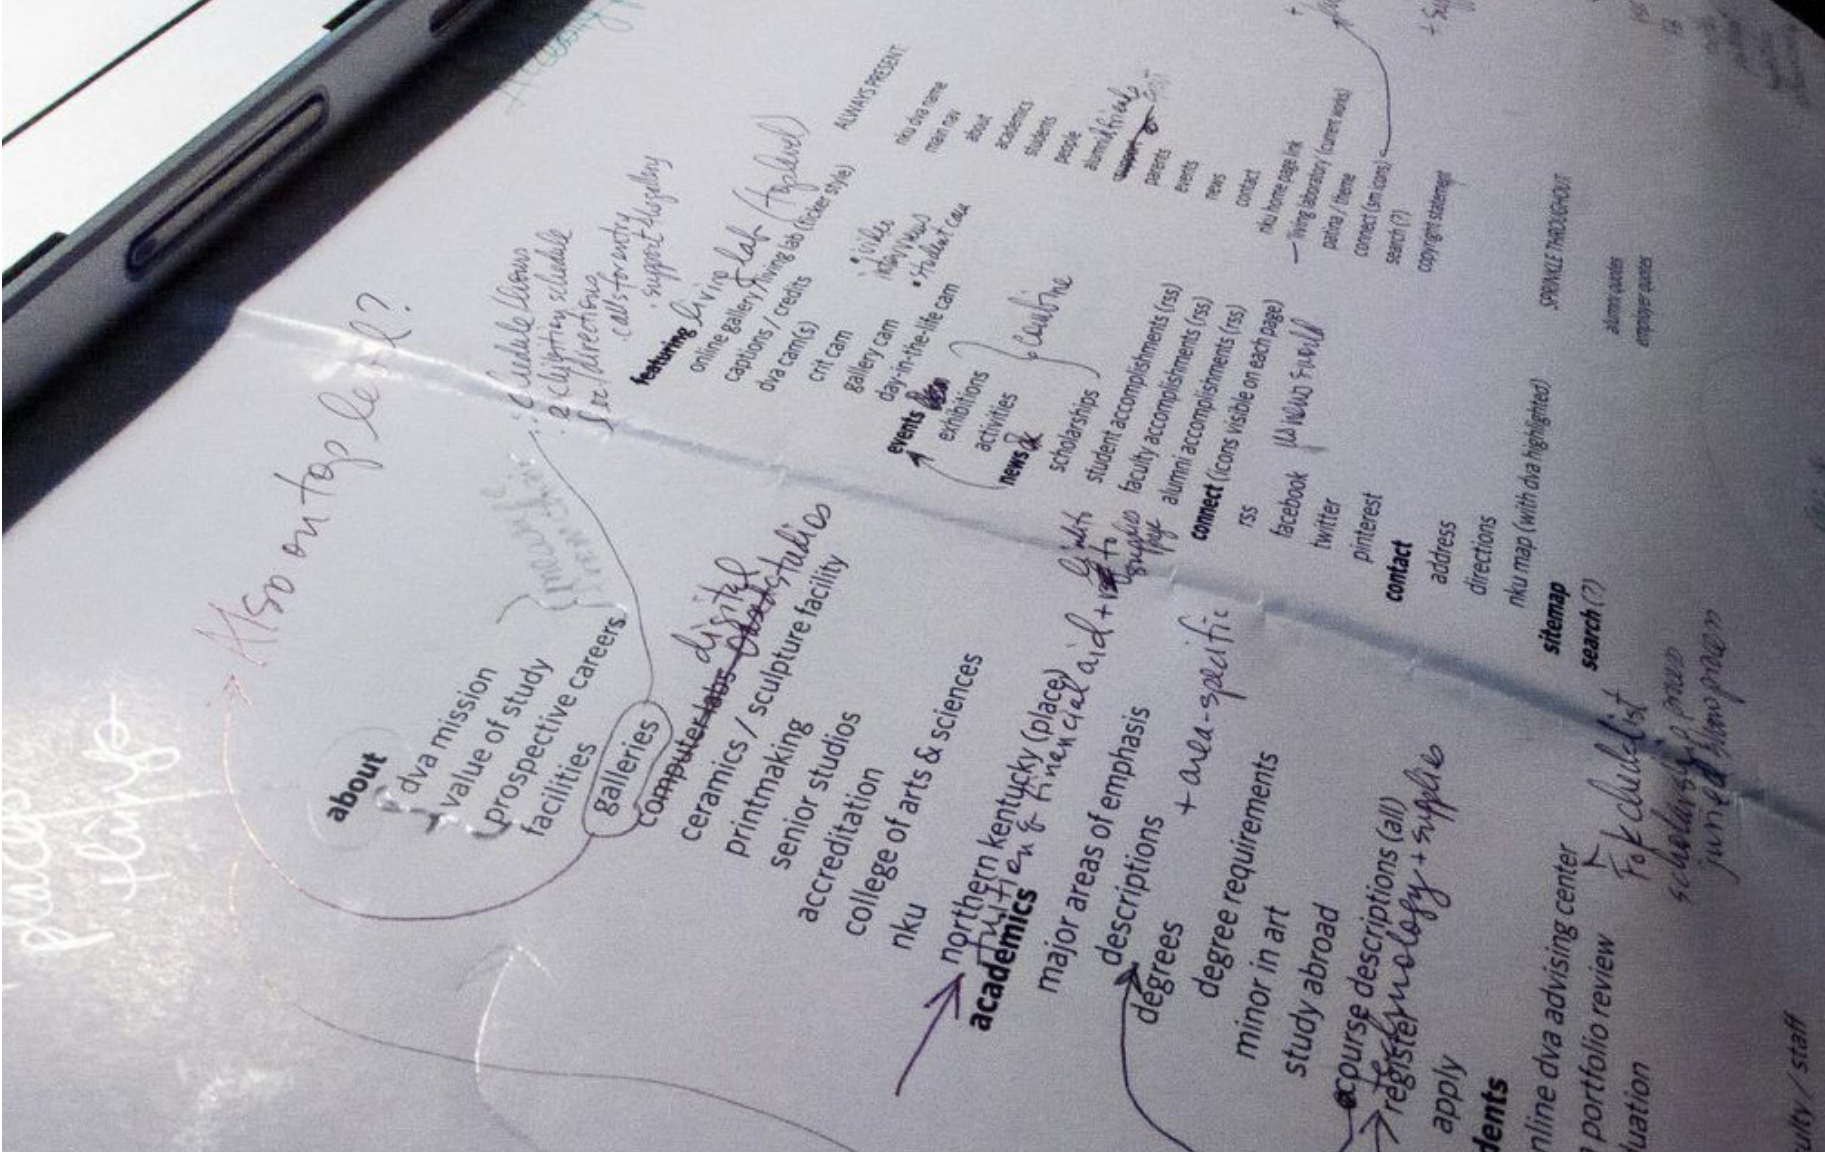 places
things
Also on top level?
about
dva mission
value of study
prospective careers
facilities
galleries
computer labs digital studios
ceramics / sculpture facility
printmaking
senior studios
accreditation
college of arts & sciences
nku
northern kentucky (place)
tuition & financial aid +
links to
supplies
page
academics
major areas of emphasis
descriptions + area-specific
degrees
degree requirements
minor in art
study abroad
course descriptions (all)
technology + supplies
register
apply
dents
nline dva advising center
portfolio review
uation
culty / staff
schedule/hours
description schedule
loc/directions
calls for entry
support the gallery
featuring living lab (top level)
online gallery / living lab (ticker style)
captions / credits
dva cam(s)
crit cam
gallery cam
day-in-the-life cam
video
interviews
student cam
events
exhibitions
activities
news
combine
scholarships
student accomplishments (rss)
faculty accomplishments (rss)
alumni accomplishments (rss)
connect (icons visible on each page)
rss
facebook
twitter
pinterest
contact
address
directions
nku map (with dva highlighted)
sitemap
search (?)
checklist
scholarship process
juried show process
ALWAYS PRESENT
nku dva name
main nav
about
academics
students
people
alumni & friends
support
parents
events
news
contact
nku home page link
living laboratory (current works)
patina / theme
connect (sm icons)
search (?)
copyright statement
SPRINKLE THROUGHOUT
alumni quotes
employer quotes